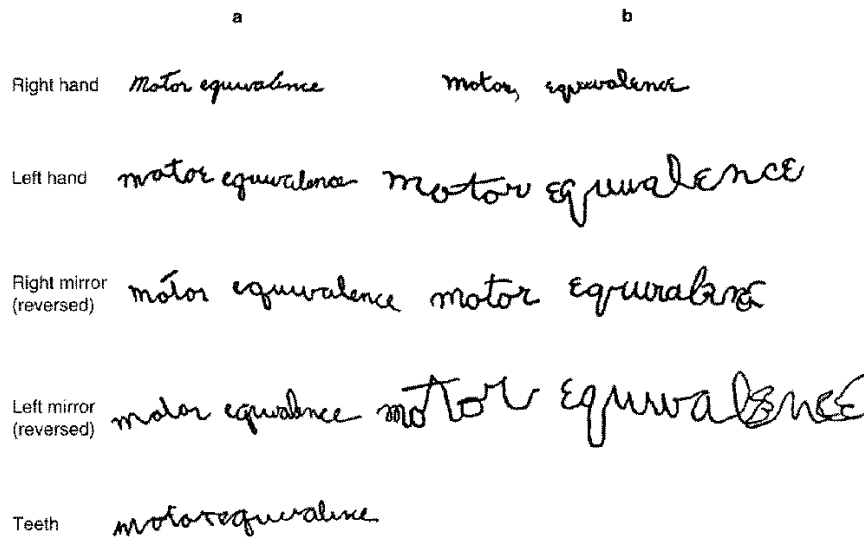 a b
Right hand Motor equivalence motor, equivalence
Left hand motor equivalence motor equivalence
Right mirror (reversed) motor equivalence motor equivalence
Left mirror (reversed) motor equivalence motor equivalence
Teeth motor equivalence